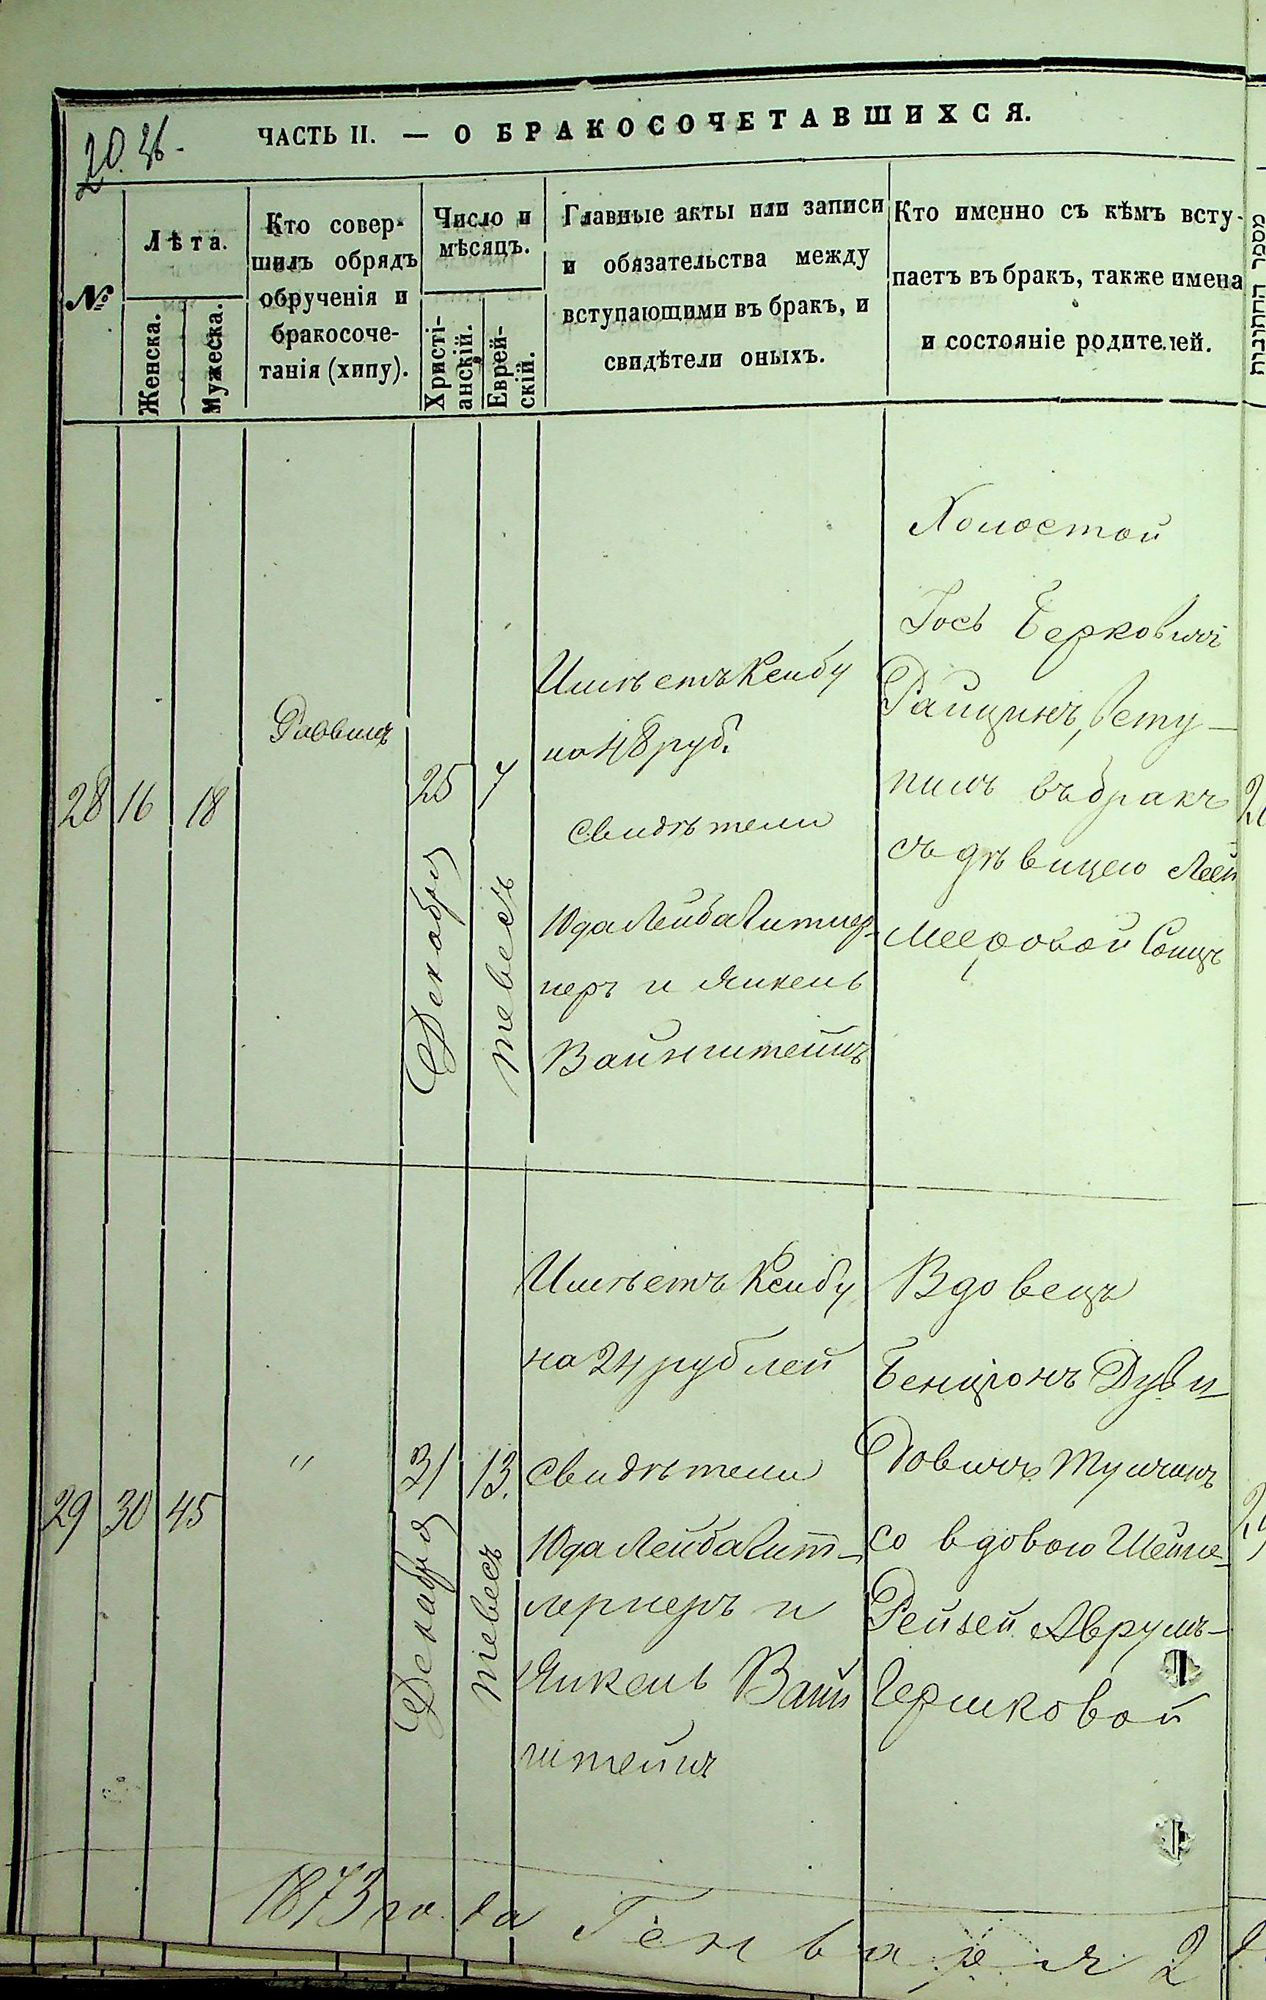 20. зб.
ЧАСТЬ II. — О БРАКОСОЧЕТАВШИХСЯ.
№
Лѣта.
Женска.
Мужеска.
Кто совер-
шилъ обрядъ
обрученія и
бракосоче-
танія (хипу).
Число и
мѣсяцъ.
Христі-
анскій.
Еврей-
скій.
Главные акты или записи
и обязательства между
вступающими въ бракъ, и
свидѣтели оныхъ.
Кто именно съ кѣмъ всту-
паетъ въ бракъ, также имена
и состояніе родителей.
28
16
18
Раввинъ
25
Декабря
7
тевесъ
Имѣетъ Ксибу
на 48 руб.
свидѣтели
Юда Лейба
неръ и Янкель
Вайнштейнъ
Холостой
Іось Берковичъ
Райцинъ, всту-
пилъ въ бракъ
съ дѣвицею Леей
Мееровой
29
30
45
"
31
Декабря
13.
тевесъ
Имѣетъ Ксибу
на 24 рублей
свидѣтели
Юда Лейба
лернеръ и
Янкель Вайн
штейнъ
Вдовецъ
Бенціонъ Дуви-
довичъ
со вдовою Шейне-
Рейзей Аврумъ-
Гершковой
1873 года Генваря 2